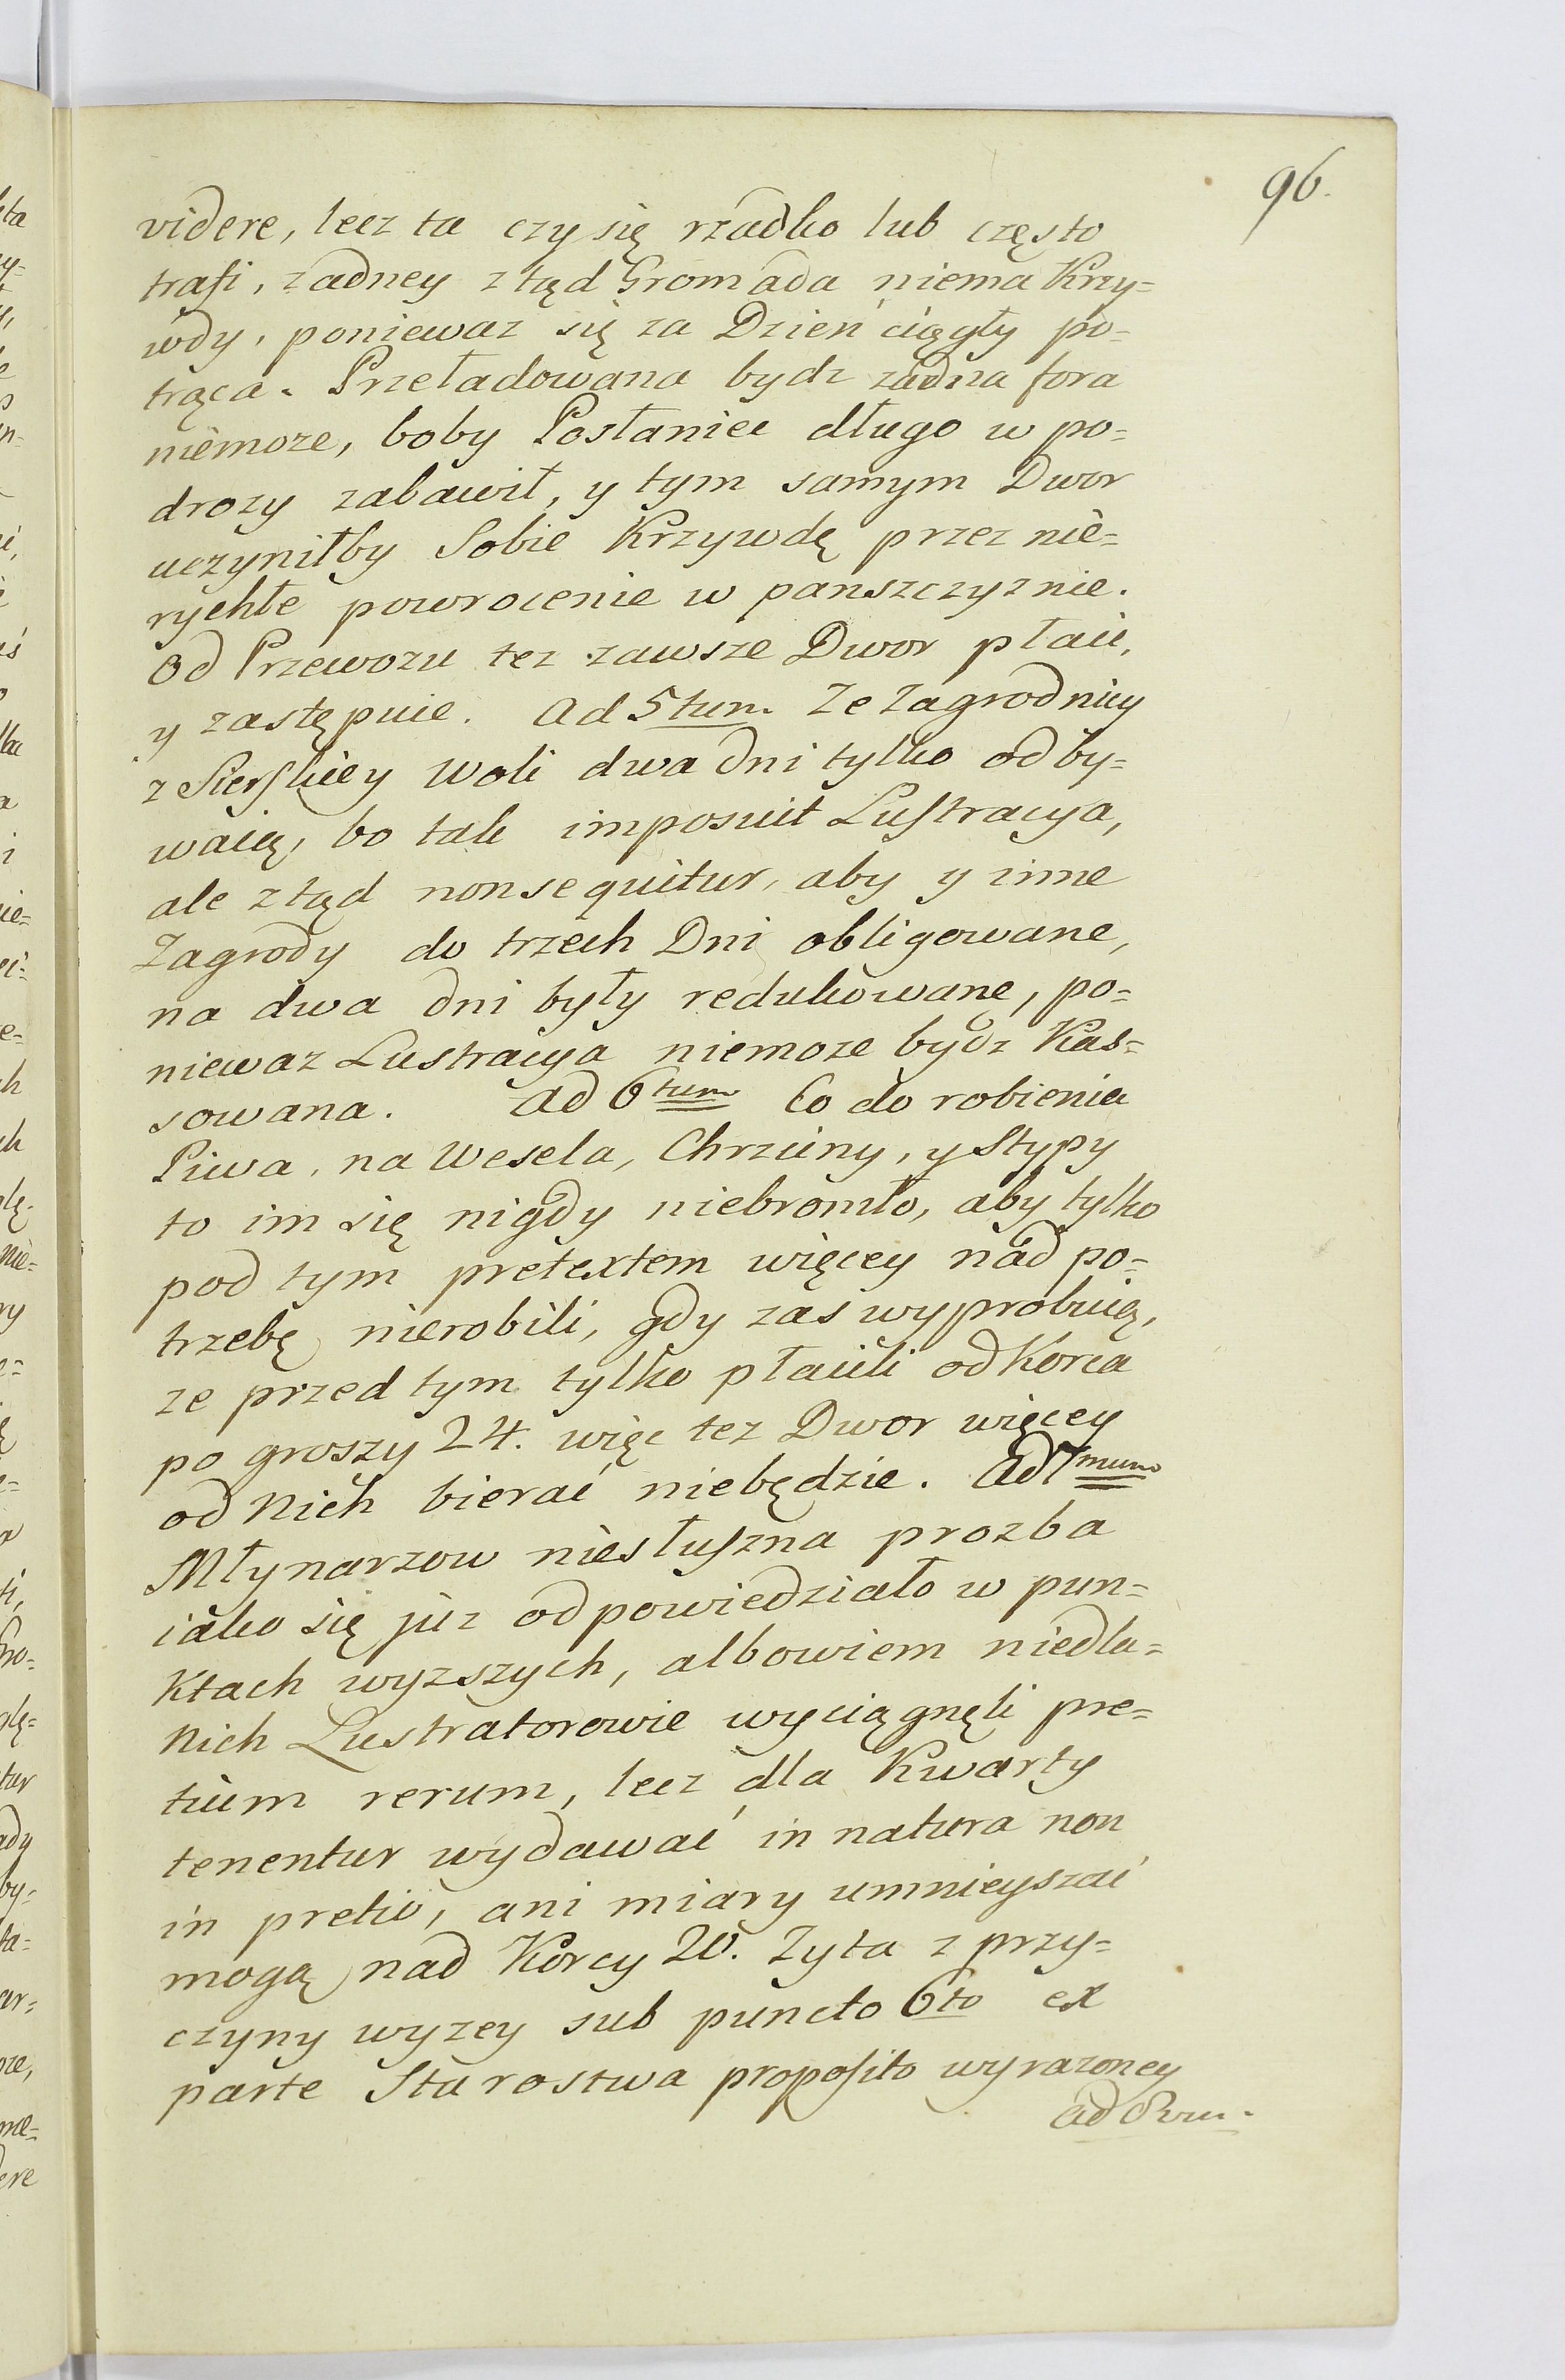 96.
videre, lecz ta czy się rzadko lub często
trafi, zadney ztąd Gromada niema Krzy=
wdy, poniewaz się za Dzień ciągły po=
trąca. Przeładowana bydz zadna fora
niemoze, boby Posłaniec długo w po=
drozy zabawił, y tym samym Dwor
uczyniłby Sobie Krzywdę przez nie=
rychłe powrocenie w panszczyznie.
Od Przewozu tez zawsze Dwor płaci,
y zastępuie. Ad 5tum Ze Zagrodnicy
z Sierskiey Woli dwa dni tylko odby=
waią, bo tak imposuit Lustracya,
ale ztąd non sequitur, aby y inne
Zagrody do trzech Dni obligowane,
na dwa dni były redukowane, po=
niewaz Lustracya niemoze bydz Kas=
sowana. Ad 6tum Co do robienia
Piwa, na Wesela, Chrzciny, y Stypy
to im się nigdy niebroniło, aby tylko
pod tym pretextem więcey nad po=
trzebę nierobili, gdy zaś wyprobuią,
ze przed tym tylko płacili od Korca
po groszy 24. więc tez Dwor więcey
od Nich bierać niebędzie. Ad 7mum
Młynarzow niesłuszna prozba
iako się juz odpowiedziało w pun=
Ktach wyzszych, albowiem niedla=
Nich Lustratorowie wyciągnęli pre=
tium rerum, lecz dla Kwarty
tenentur wydawać in natura non
in pretio, ani miary umnieyszać
mogą nad Korcy 20. Zyta z przy=
czyny wyzey sub puncto 6to ex
parte Starostwa proposito wyrazoney
ad 8vum.